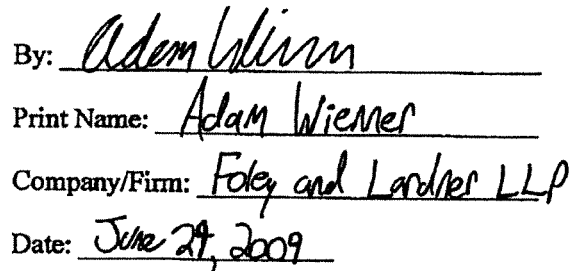 By: Adam Wienner
Print Name: Adam Wienner
Company/Firm: Foley and Lardner LLP
Date: June 29, 2009